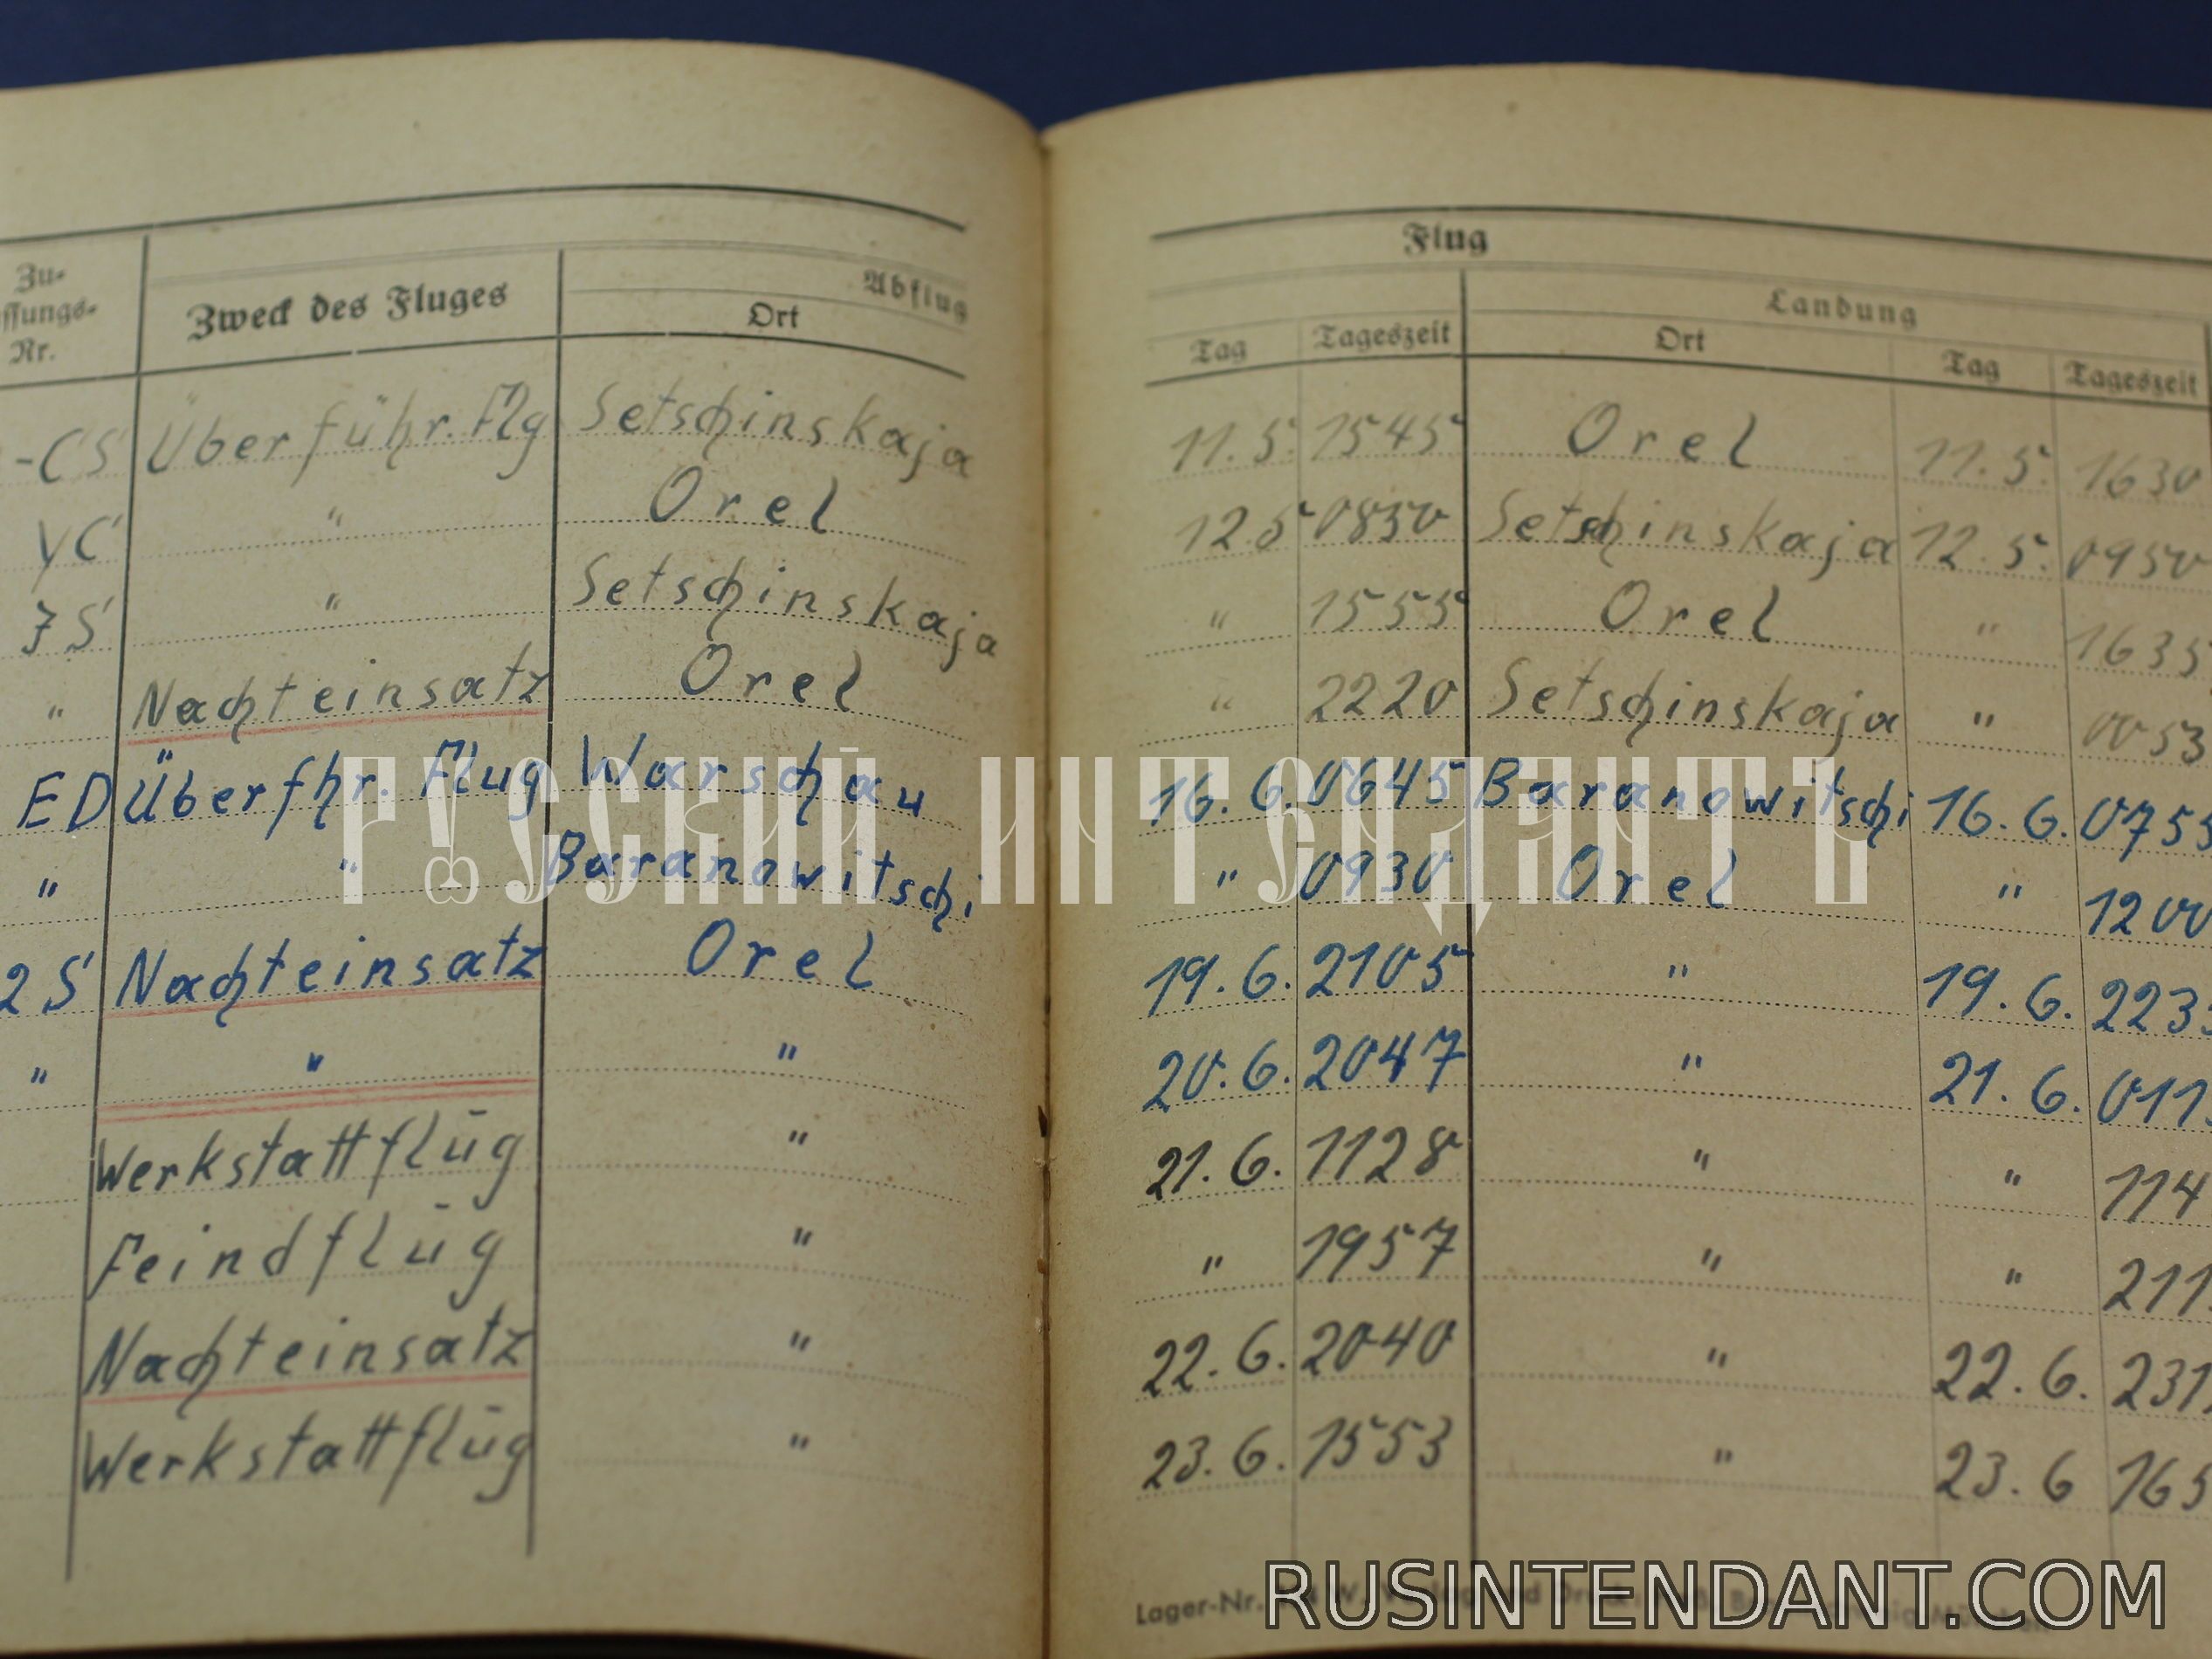 Flug
Zu-
ssungs-
Nr.
Zweck des Fluges
Abflug
Ort
Tag Tageszeit
Landung
Ort
Tag Tageszeit
-CS Überführ. Flg Setschinskaja 11.5. 1545 Orel 11.5. 1630
YC " Orel 12.5 0830 Setschinskaja 12.5. 0950
7S " Setschinskaja " 1555 Orel " 1635
" Nachteinsatz Orel " 2220 Setschinskaja " 0053
ED Überfhr. Flug Warschau 16.6. 0645 Baranowitschi 16.6. 0755
" " Baranowitschi " 0930 Orel " 1200
2S Nachteinsatz Orel 19.6. 2105 " 19.6. 223
" " " 20.6. 2047 " 21.6. 011
Werkstattflūg " 21.6. 1128 " " 114
Feindflūg " " 1957 " " 211
Nachteinsatz " 22.6. 2040 " 22.6. 231
Werkstattflūg " 23.6. 1553 " 23.6 165
РУССКИЙ ИНТЕНДАНТЪ
Lager-Nr.
RUSINTENDANT.COM